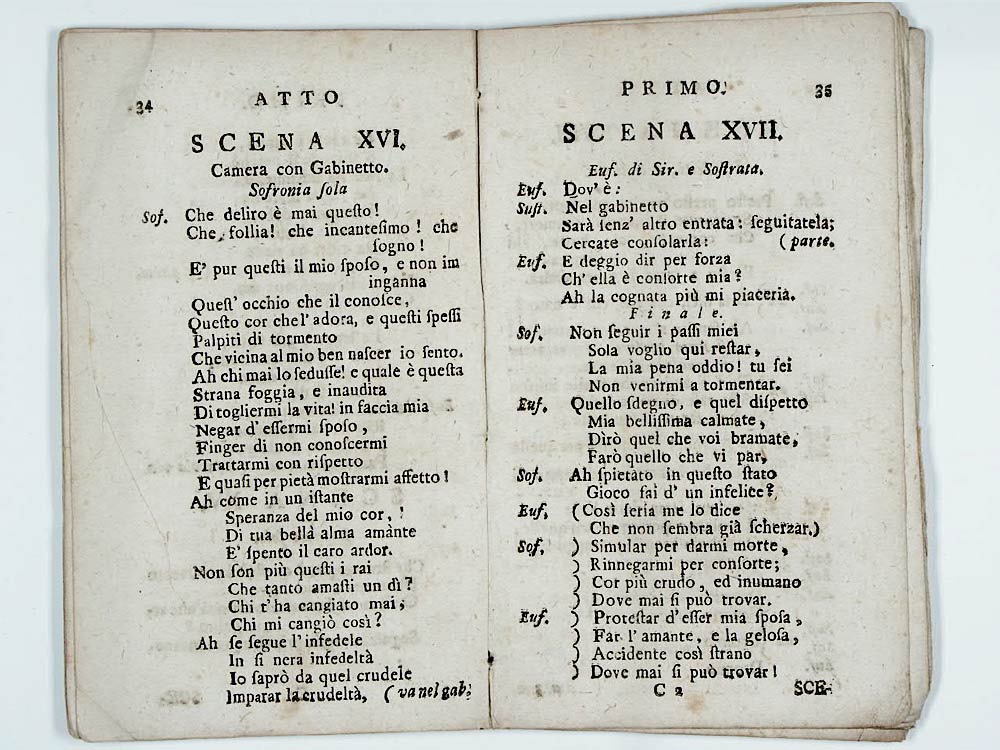 34 ATTO
SCENA XVI.
Camera con Gabinetto.
Sofronia ſola
Sof. Che deliro è mai queſto!
Che, follia! che incanteſimo! che
ſogno!
E' pur queſti il mio ſpoſo, e non im
inganna
Queſt' occhio che il conoſce,
Queſto cor chel' adora, e queſti ſpeſſi
Palpiti di tormento
Che vicina al mio ben naſcer io ſento.
Ah chi mai lo ſeduſſe! e quale è queſta
Strana foggia, e inaudita
Di togliermi la vita! in faccia mia
Negar d' eſſermi ſpoſo,
Finger di non conoſcermi
Trattarmi con riſpetto
E quaſi per pietà moſtrarmi affetto!
Ah come in un iſtante
Speranza del mio cor, !
Di tua bella alma amante
E' ſpento il caro ardor.
Non ſon più queſti i rai
Che tanto amaſti un dì?
Chi t' ha cangiato mai;
Chi mi cangiò così?
Ah ſe ſegue l' infedele
In ſi nera infedeltà
Io ſaprò da quel crudele
Imparar la crudeltà, (va nel gab.
PRIMO. 35
SCENA XVII.
Euf. di Sir. e Soſtrata.
Euf. Dov' è:
Suſt. Nel gabinetto
Sarà ſenz' altro entrata: ſeguitatela;
Cercate conſolarla: (parte.
Euf. E deggio dir per forza
Ch' ella è conſorte mia?
Ah la cognata più mi piaceria.
Finale.
Sof. Non ſeguir i paſſi miei
Sola voglio qui reſtar,
La mia pena oddio! tu ſei
Non venirmi a tormentar.
Euf. Quello ſdegno, e quel diſpetto
Mia belliſſima calmate,
Dìrò quel che voi bramate,
Farò quello che vi par,
Sof. Ah ſpietato in queſto ſtato
Gioco fai d' un infelice?
Euf, (Così ſeria me lo dice
Che non ſembra già ſcherzar.)
Sof, ) Simular per darmi morte,
) Rinnegarmi per conforte;
) Cor più crudo, ed inumano
) Dove mai ſi può trovar.
Euf. ) Proteſtar d'eſſer mia ſpoſa,
) Far l' amante, e la geloſa,
) Accidente così ſtrano
) Dove mai ſi può trovar!
C 2 SCE-